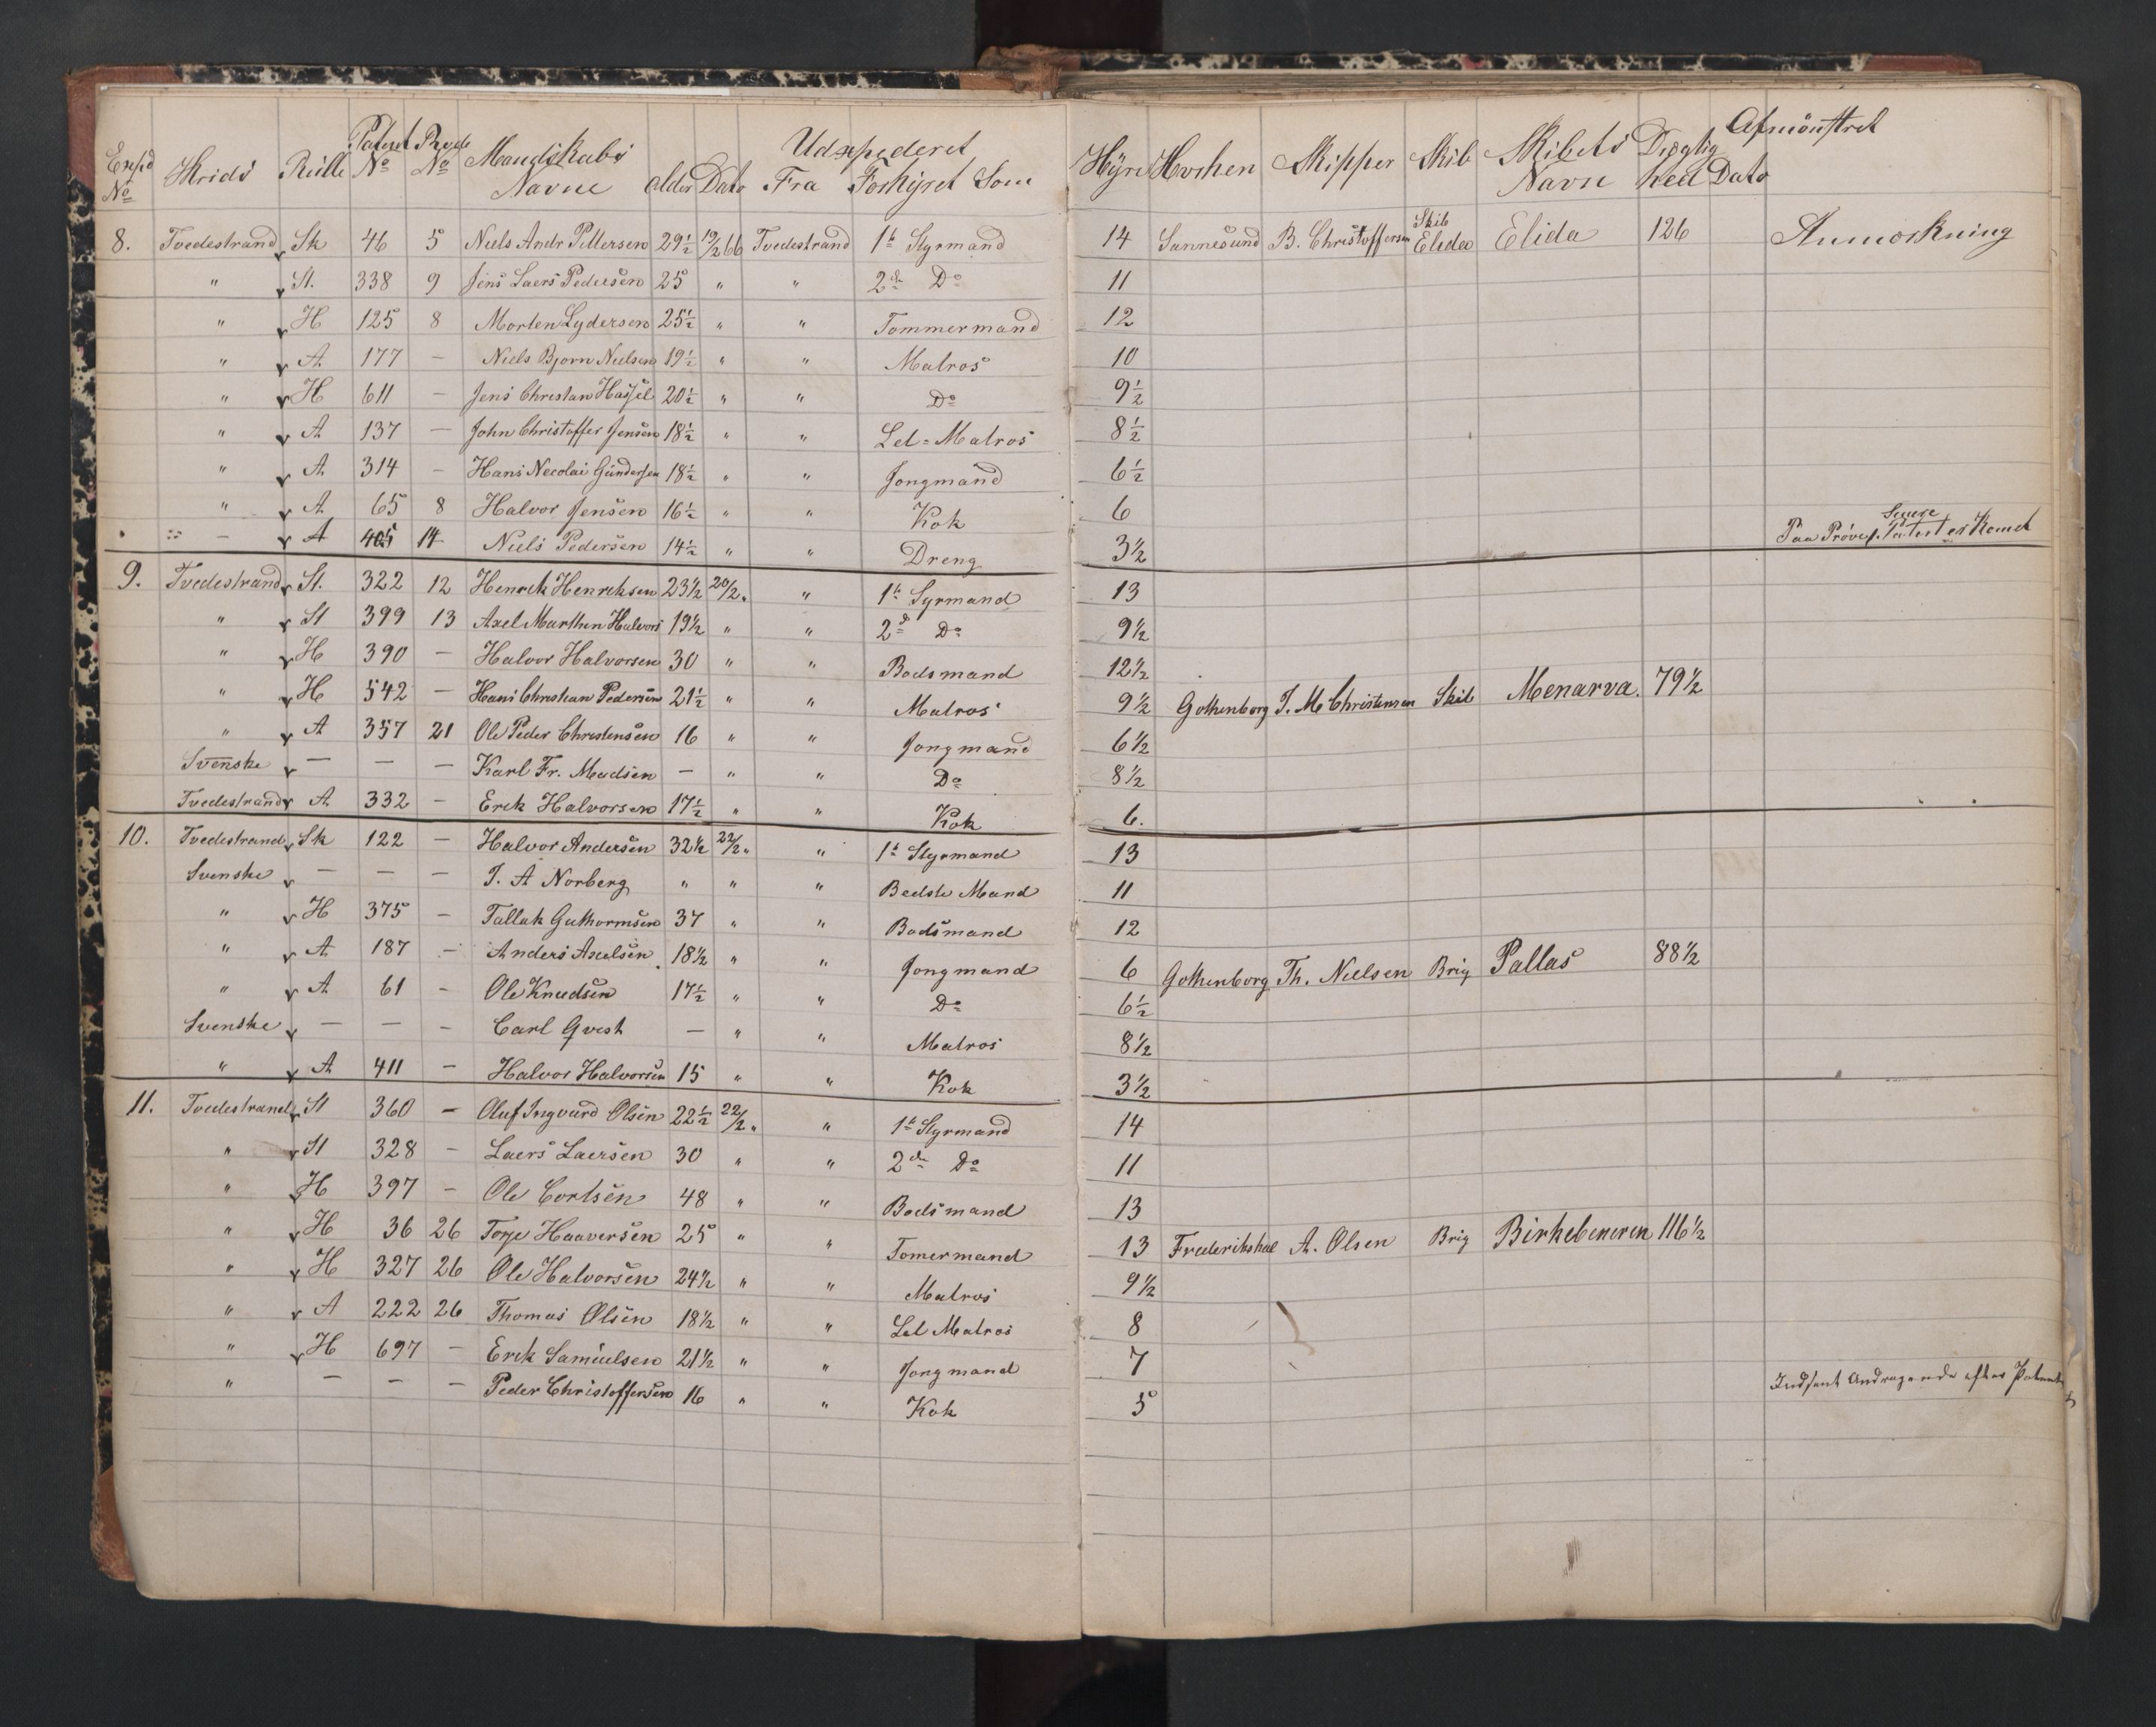 Exp'd No Krids Rulle Patent No Prøve No Mandskabs Navne Alder Dato Udexpederet Fra Forhyret Som Hyre Hvorhen Skipper Skib Skibets Navn Drægtighed Dato Afmönstret
8. Tvedestrand Sk 46 5 Niels Andr Pettersen 29½ 19/2 66 Tvedestrand 1te Styrmand 14 Sannesund B. Christoffersen Skib Elida Elida 126 Anmærkning
" St. 338 9 Jens Laers Pedersen 25 " " 2den Do 11
" H 125 8 Morten Lydersen 25½ " " Tommermand 12
" A 177 — Niels Bjorn Nielsen 19½ " " Matros 10
" H 611 — Jens Christian Hassel 20½ " " Do 9½
" A 137 — John Christoffer Jensen 18½ " " Let=Matros 8½
" A 314 — Hans Necolai Gündersen 18½ " " Jongmand 6½
" A 65 8 Halvor Jensen 16½ " " Kok 6
" — A 405 14 Niels Pedersen 14½ " " Dreng 3½ Paa Prøve, Senere Patent er Komet
9. Tvedestrand St. 322 12 Henrik Henriksen 23½ 20/2 " " 1te Syrmand 13
" St 399 13 Axel Marthen Halvors 19½ " " 2d Do 9½
" H 390 — Halvor Halvorsen 30 " " Bodsmand 12½
" H 542 — Hans Christian Pedersen 21½ " " Matros 9½ Gothenborg J. M Christensen Skib Menarva. 79½
" A 357 21 Ole Peder Christensen 16 " " Jongmand 6½
Svenske — — — Karl Fr. Madsen — " " Do 8½
Tvedestrand A 332 — Erik Halvorsen 17½ " " Kok 6.
10. Tvedestrand Sk 122 — Halvor Andersen 32½ 22/2 " " 1te Styrmand 13
Svenske — — — J. A Norberg " " " Bedste Mand 11
" H 375 — Tallak Guthormsen 37 " " Bodsmand 12
" A 187 — Anders Axelsen 18½ " " Jongmand 6 Gothenborg Th. Nielsen Brig Pallas 88½
" A 61 — Ole Knudsen 17½ " " Do 6½
Svenske — — — Carl Qvest — " " Matros 8½
" A 411 — Halvor Halvorsen 15 " " Kok 3½
11. Tvedestrand St 360 — Oluf Ingvard Olsen 22½ 22/2 " " 1te Styrmand 14
" St 328 — Laers Laersen 30 " " 2den Do 11
" H 397 — Ole Cortsen 48 " " Bodsmand 13
" H 36 26 Torje Haaversen 25 " " Tomermand 13 Frederikshal A. Olsen Brig Birkebeneren 116½
" H 327 26 Ole Halvorsen 24½ " " Matros 9½
" A 222 26 Thomas Olsen 18½ " " Let Matros 8
" H 697 — Erik Samüelsen 21½ " " Jongmand 7
" — — — Peder Christoffersen 16 " " Kok 5 Indsent Andragende efter Patent